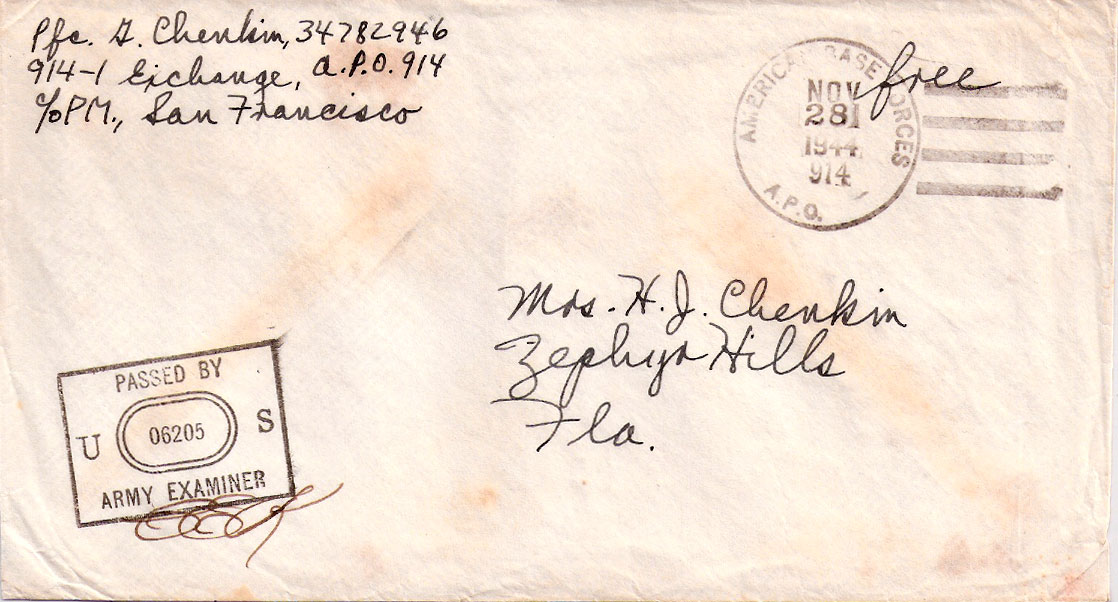 Pfc. G. Chenkin, 34782946
914-1 Exchange, A.P.O. 914
c/o PM., San Francisco
free
AMERICAN BASE FORCES
NOV
281
1944
914
A.P.O.
Mrs. H. J. Chenkin
Zephyr Hills
Fla.
PASSED BY
U 06205 S
ARMY EXAMINER